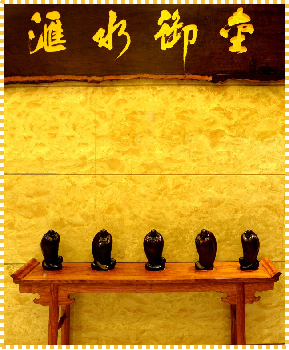 滙水御堂